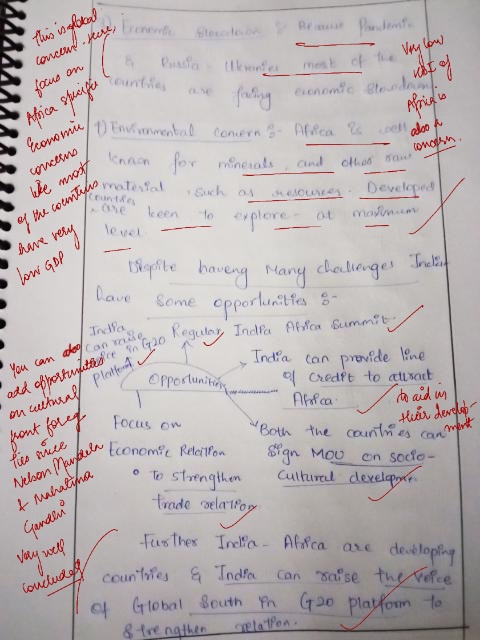 ) Economic Slowdown :- Because Pandemic
& Russia - Ukraine most of the
countries are facing economic slowdown
f) Environmental concern :- Africa is well
known for minerals, and other raw
material, such as resources. Developed
countries are keen to explore at maximum
level.
Dispite haveng Many challenges India
have some opportunities :-
India
can raise
voice in G20
platform
Regular India Africa Summit.
Opportunities
India can provide line
of credit to attract
Africa.
Focus on
Economic Relation
To strengthen
trade relation
Both the countries can
Sign MOU on socio-
cultural developme
Further India - Africa are developing
countries & India can raise the voice
of Global South in G20 platform to
strengthen relation.
This is global
concern here,
focus on
Africa specific
Economic
concerns
like most
of the countries
have very
low GDP
Very low
of
Africa is
also a
concern.
You can also
add opportunities
on cultural
front for eg
ties since
Nelson Mandela
& Mahatma
Gandhi
to aid in
their develop-
ment
Very well
concluded